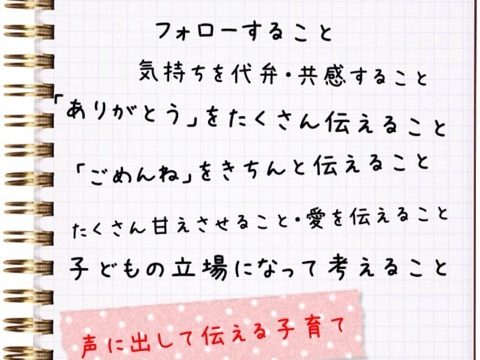 フォローすること
気持ちを代弁・共感すること
「ありがとう」をたくさん伝えること
「ごめんね」をきちんと伝えること
たくさん甘えさせること・愛を伝えること
子どもの立場になって考えること
声に出して伝える子育て